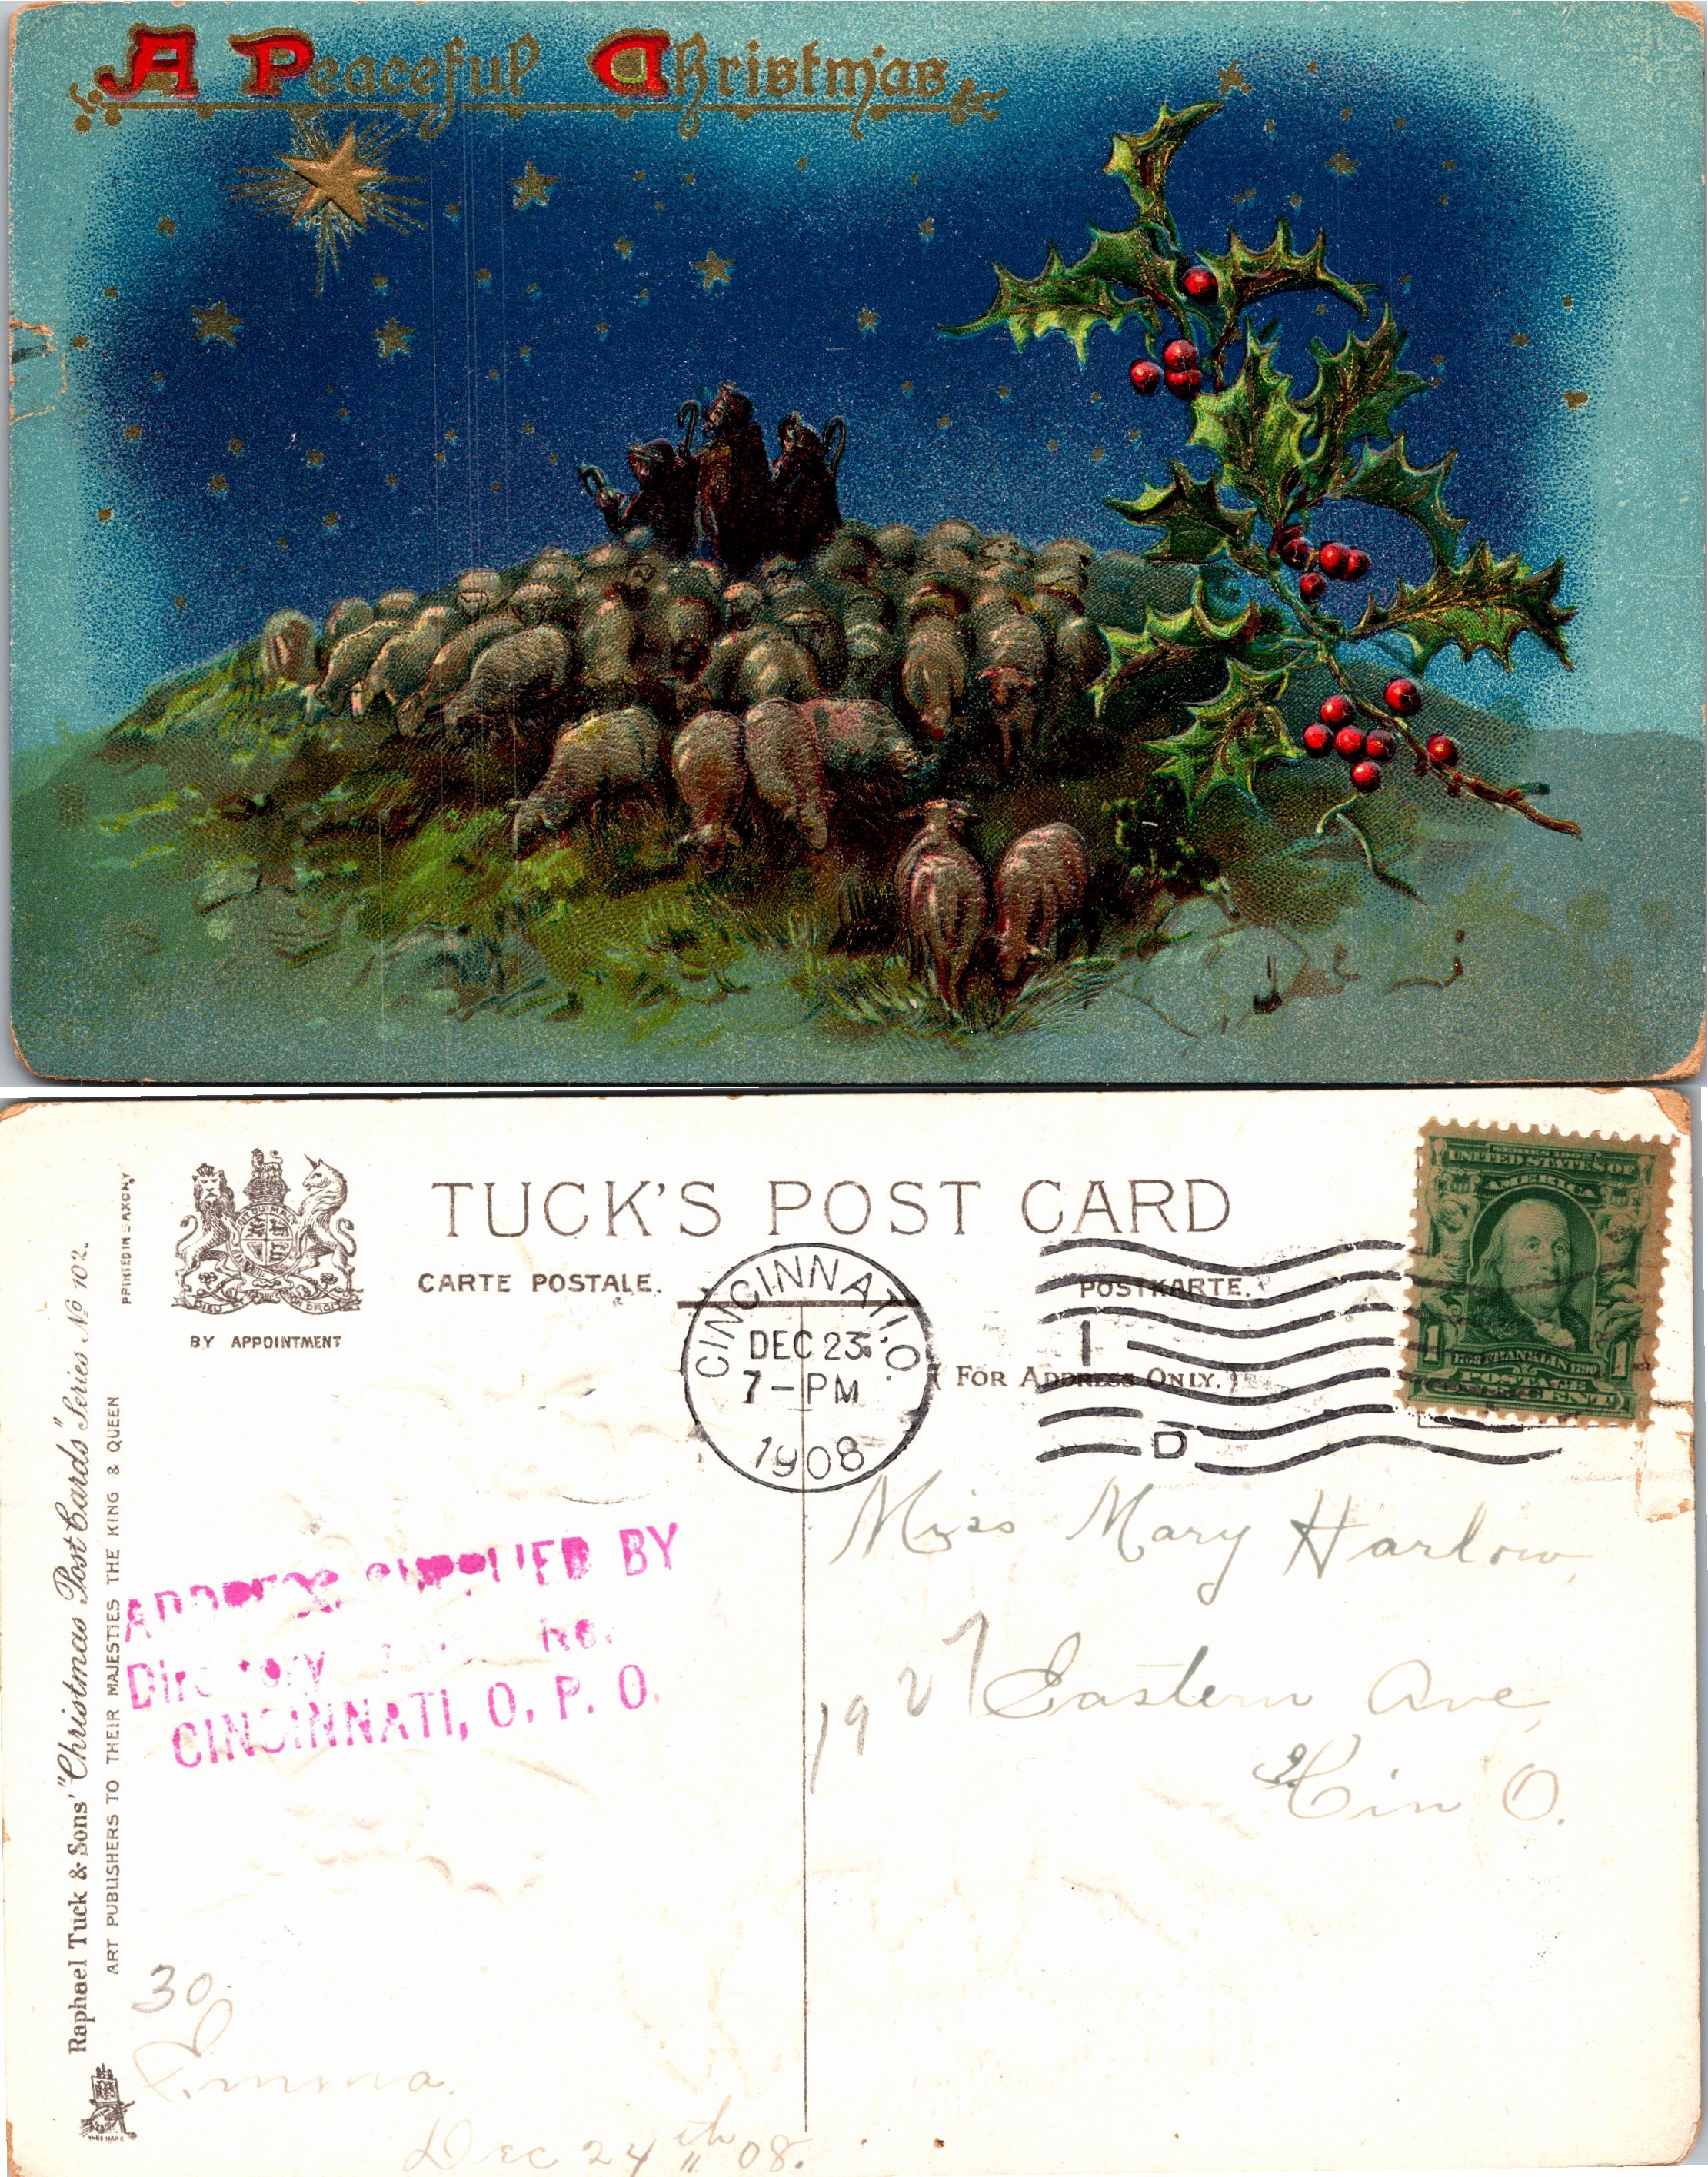 A Peaceful Christmas
Raphael Tuck & Sons' "Christmas Post Cards" Series No 102.
ART PUBLISHERS TO THEIR MAJESTIES THE KING & QUEEN
PRINTED IN SAXONY
DIEU ET MON DROIT
BY APPOINTMENT
TUCK'S POST CARD
CARTE POSTALE.
POSTKARTE.
(FOR ADDRESS ONLY.)
CINCINNATI, O.
DEC 23
7-PM
1908
1
D
SERIES 1902
UNITED STATES OF
AMERICA
1706 FRANKLIN 1790
1 POSTAGE 1
ONE CENT
ADDRESS SUPPLIED BY
Directory No.
CINCINNATI, O. P. O.
Miss Mary Harlow,
1927 Eastern Ave,
Cin O.
30
Emma.
Dec 24th 08.
TRADE MARK